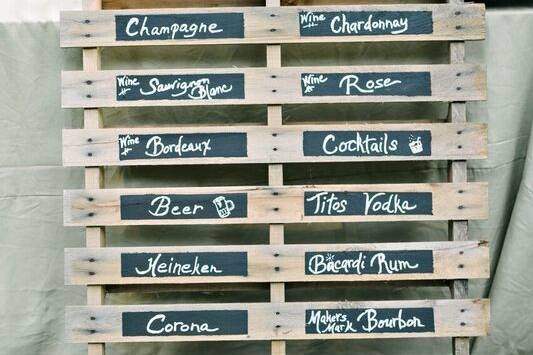 Champagne
Wine Chardonnay
Wine Sauvignon Blanc
Wine Rose
Wine Bordeaux
Cocktails
Beer
Titos Vodka
Heineken
Bacardi Rum
Corona
Makers Mark Bourbon